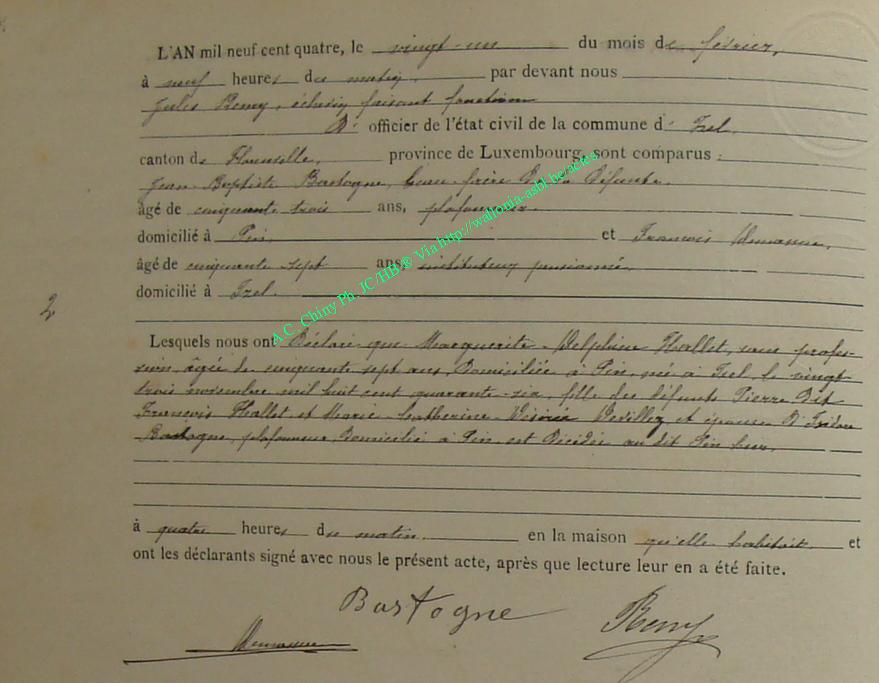 L'AN mil neuf cent quatre, le vingt-un du mois de février,
à neuf heures du matin, par devant nous
Jules Remy, échevin faisant fonctions
d' officier de l'état civil de la commune d' Izel,
canton de Florenville, province de Luxembourg, sont comparus :
Jean-Baptiste Bastogne, beau-frère de la défunte,
âgé de cinquante trois ans, plafonneur,
domicilié à Pin, et François
âgé de cinquante-sept ans, instituteur pensionné,
domicilié à Izel.
2
Lesquels nous ont déclaré que Marguerite-Delphine Thallet, sans profes-
sion, âgée de cinquante sept ans, domiciliée à Pin, née à Izel, le vingt
trois novembre mil huit cent quarante-six, fille des défunts Pierre dit
François Thallet et Marie-Catherine et épouse d'Isidore
Bastogne, plafonneur, domicilié à Pin, est décédée au dit Pin hier,
à quatre heures du matin, en la maison qu'elle habitait, et
ont les déclarants signé avec nous le présent acte, après que lecture leur en a été faite.
Bastogne
Remy
A.C. Chiny Ph. JC/HB ® Via http://wallonia-asbl.be/actes